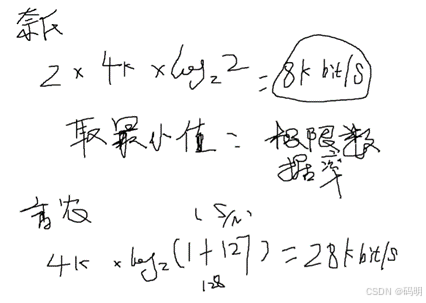 奈氏
2 × 4k × log₂2 = 8k bit/s
取最小值 = 极限数
据率
香农
(S/N)
4k × log₂(1+127) = 28k bit/s
128
CSDN @码明